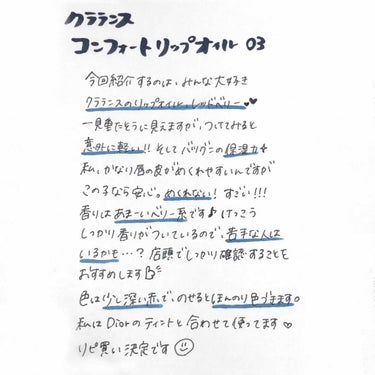 クラランス
コンフォートリップオイル 03
今回紹介するのは、みんな大好き
クラランスのリップオイル、レッドベリー♥♥
一見重たそうに見えますが、つけてみると
意外に軽い!! そしてバツグンの保湿力
私、かなり唇の皮がめくれやすいんですが
この子なら安心。めくれない! すごい!!!
香りはあまーいベリー系です♪ けっこう
しっかり香りがついているので、苦手な人は
いるかも…? 店頭でしっかり確認することを
おすすめします
色は少し深い赤で、のせるとほんのり色づきます。
私はDiorのティントと合わせて使ってます♡
リピ買い決定です☺